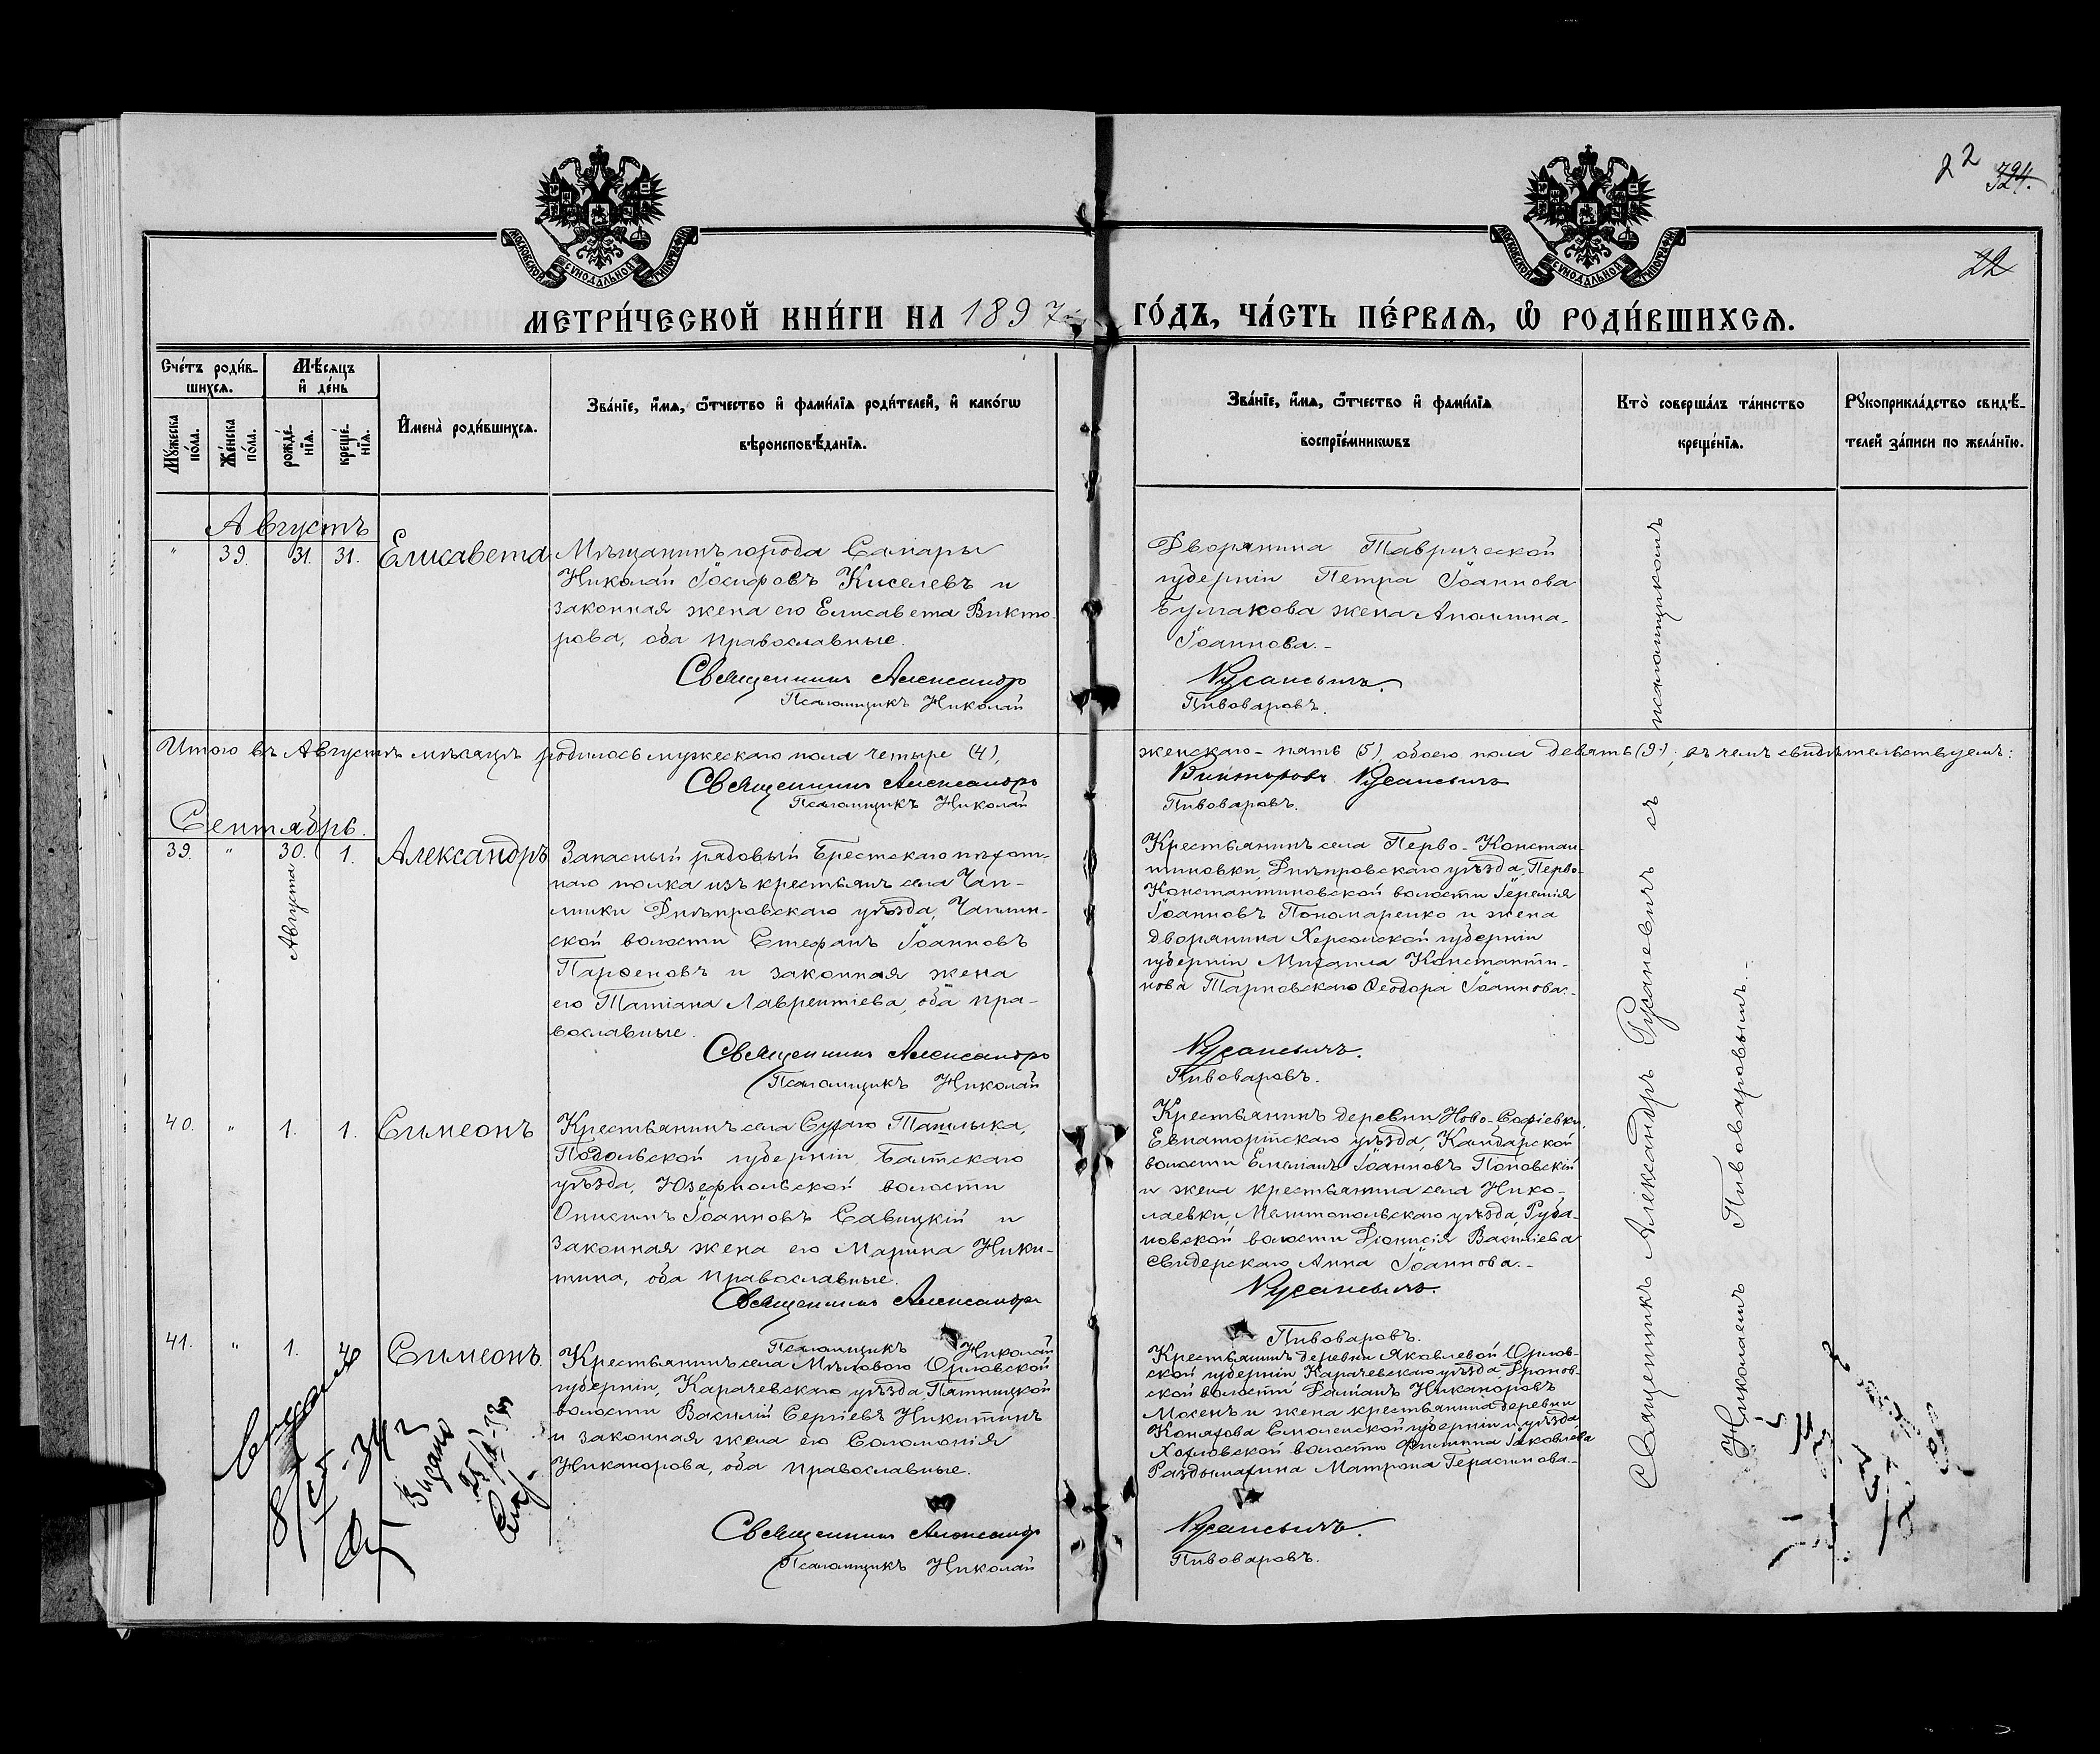 22
324.
22
МОСКОВСКОЙ СѴНОДАЛЬНОЙ ТИПОГРАФІИ
МОСКОВСКОЙ СѴНОДАЛЬНОЙ ТИПОГРАФІИ
МЕТРИ́ЧЕСКОЙ КНИ́ГИ НА 1897 ГО́ДЪ, ЧА́СТЬ ПЕ́РВАѦ, Ѡ҆ РОДИ́ВШИХСѦ.
Сче́тъ роди́в-
шихсѧ.
Мѣ́сѧцъ
и҆ де́нь
Мꙋ́жеска
по́ла.
Же́нска
по́ла.
рожде́-
нїѧ.
креще́-
нїѧ.
И҆мена̀ роди́вшихсѧ.
Зва́нїе, и҆́мѧ, ѻ҆́тчество и҆ фами́лїѧ роди́телей, и҆ како́гѡ
вѣроисповѣ́данїѧ.
Зва́нїе, и҆́мѧ, ѻ҆́тчество и҆ фами́лїѧ
воспрїе́мникѡвъ
Кто̀ соверша́лъ та́инство
креще́нїѧ.
Рꙋкоприкла́дство свидѣ́-
телей за́писи по жела́нїю.
Августъ
" 39. 31. 31. Елисавета
Мѣщанинъ города Самары
Николай Іосифовъ Киселевъ и
законная жена его Елисавета Викто-
рова, оба православные.
Священникъ Александръ
Псаломщикъ Николай
Дворянина Таврической
губерніи Петра Іоаннова
Булакова жена
Іоаннова.-
Русаневичъ.
Пивоваровъ.
Итого въ Августѣ мѣсяцѣ родилось мужескаго пола четыре (4),
женскаго - пять (5), обоего пола девять (9); въ чемъ свидѣтельствуемъ:
Священникъ Александръ
Викторовъ Русаневичъ
Псаломщикъ Николай
Пивоваровъ.
Сентябрь.
39. " 30. 1. Александръ
Августа
Запасный рядовый Брестскаго пѣхот-
наго полка изъ крестьянъ села Чап-
линки Днѣпровскаго уѣзда, Чаплин-
ской волости Стефанъ Іоанновъ
Парѳеновъ и законная жена
его Татіана Лаврентіева, оба пра-
вославные.
Священникъ Александръ
Псаломщикъ Николай
Крестьянинъ села Перво-Констан-
тиновки Днѣпровскаго уѣзда, Перво-
Константиновской волости Іеремія
Іоанновъ Пономаренко и жена
дворянина Херсонской губерніи
губерніи Михаила Константи-
нова Тарновскаго Ѳеодора Іоаннова.-
Русаневичъ.
Пивоваровъ.
40. " 1. 1. Симеонъ
Крестьянинъ села Сухаго Ташлыка,
Подольской губерніи, Балтскаго
уѣзда, Юзефпольской волости
Онисимъ Іоанновъ Савицкій и
законная жена его Марина Ники-
тина, оба православные.
Священникъ Александръ
Псаломщикъ Николай
Крестьянинъ деревни Ново-Софіевки,
Евпаторійскаго уѣзда,
волости Емеліанъ Іоанновъ Поповскій
и жена крестьянина села Нико-
лаевки, Мелитопольскаго уѣзда, Руба-
новской волости Діонисія Василіева
Свидерскаго Анна Іоаннова.-
Русаневичъ.
Пивоваровъ.
41. " 1. Симеонъ.
Крестьянинъ села Мѣловаго Орловской
губерніи, Карачевскаго уѣзда, Пятницкой
волости Василій Сергіевъ Никитинъ
и законная жена его Соломонія
Никанорова, оба православные.
Священникъ Александръ
Псаломщикъ Николай
Крестьянинъ деревни Яковлевой Орлов-
ской губерніи Карачевскаго уѣзда, Дронов-
ской волости Даміанъ Никаноровъ
и жена крестьянина деревни
Смоленской губерніи и уѣзда
Хохловской волости Филиппа Іаковлева
Матрона Герасимова.-
Русаневичъ.
Пивоваровъ.
Священникъ Александръ Русаневичъ съ псаломщикомъ
Николаемъ Пивоваровымъ.-